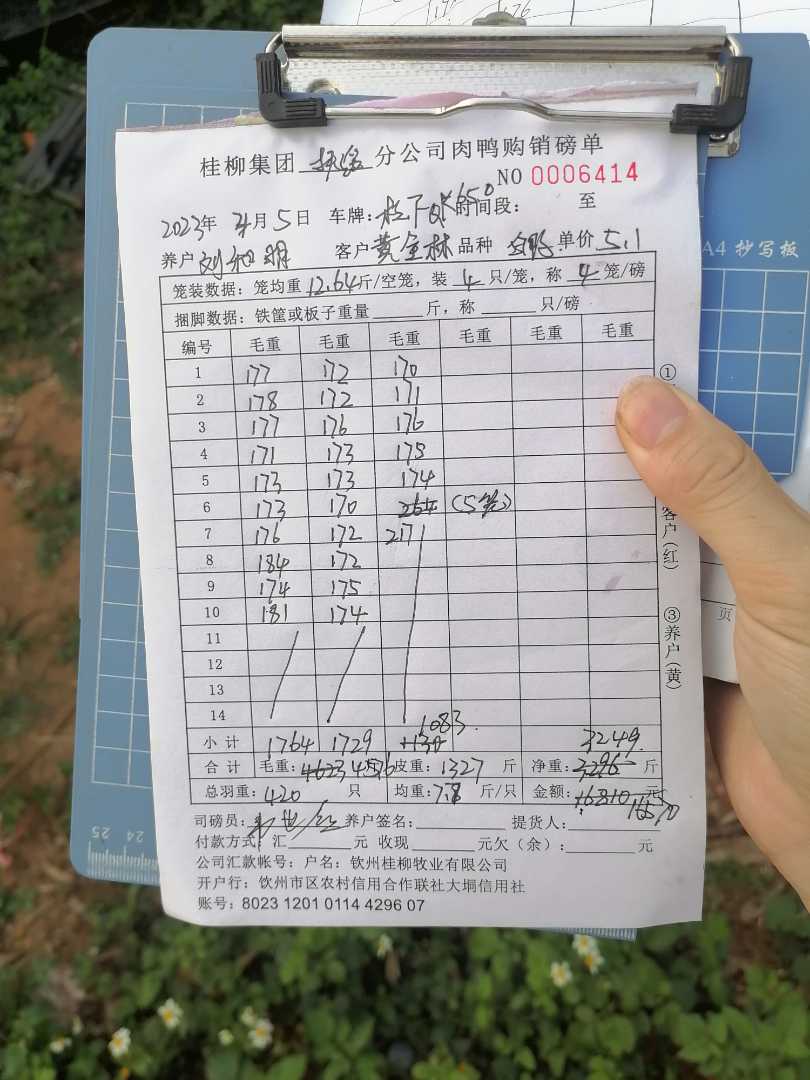 176
桂柳集团 分公司肉鸭购销磅单
NO 0006414
2023年 4月5日 车牌: 时间段: 至
养户 客户 黄金林 品种 单价 5.1
笼装数据：笼均重 12.64斤/空笼，装 4 只/笼，称 4 笼/磅
捆脚数据：铁筐或板子重量 斤，称 只/磅
编号 毛重 毛重 毛重 毛重 毛重 毛重
1 177 172 170
2 178 172 171
3 177 176 176
4 171 173 175
5 173 173 174
6 173 170 (5笼)
7 176 172 217
8 184 172
9 174 175
10 181 174
11
12
13
14
小计 1764 1729 1083 3249
合计 毛重: 4623 4576 皮重: 1327 斤 净重: 3296 斤
总羽重: 420 只 均重: 7.8 斤/只 金额: 16810 元 16570
司磅员: 养户签名: 提货人:
付款方式: 汇 元 收现 元欠（余）: 元
公司汇款帐号：户名：钦州桂柳牧业有限公司
开户行：钦州市区农村信用合作联社大垌信用社
账号：8023 1201 0114 4296 07
①
客户(红)
③养户(黄)
A4 抄写板
页
25 24